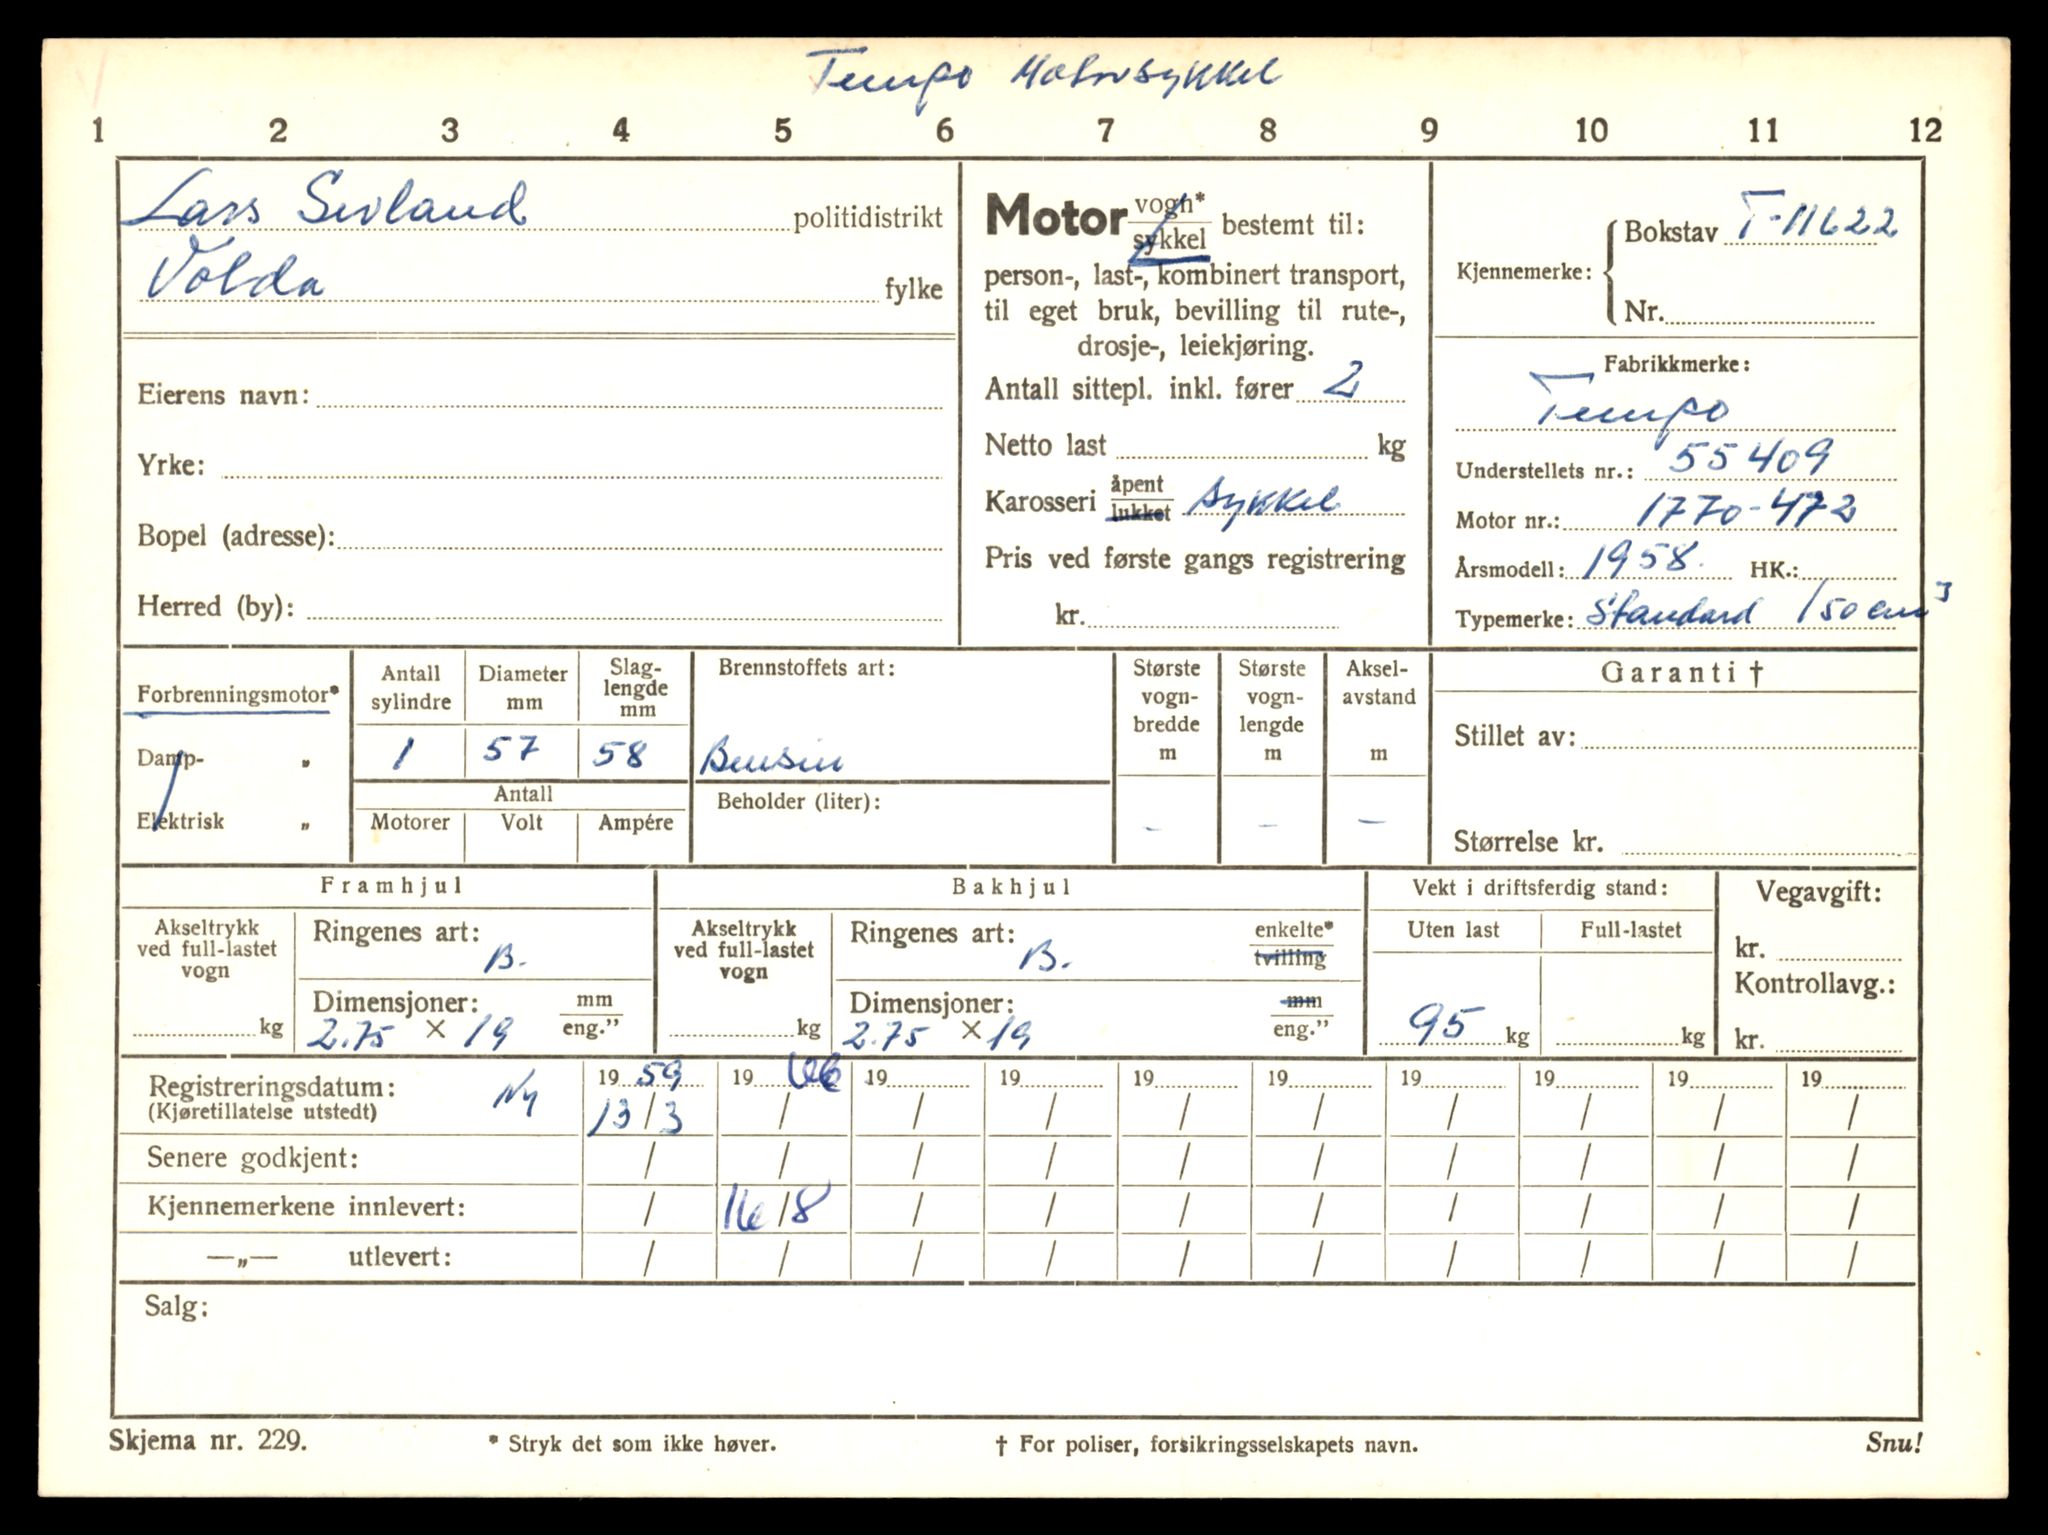 Tempo Motorsykkel
1 2 3 4 5 6 7 8 9 10 11 12
Lars Sivland politidistrikt
Volda fylke
Eierens navn:
Yrke:
Bopel (adresse):
Herred (by):
Motor vogn* sykkel bestemt til:
person-, last-, kombinert transport,
til eget bruk, bevilling til rute-,
drosje-, leiekjøring.
Antall sittepl. inkl. fører 2
Netto last kg
Karosseri åpent lukket sykkel
Pris ved første gangs registrering
kr.
Kjennemerke: Bokstav T-11622
Nr.
Fabrikkmerke:
Tempo
Understellets nr.: 55409
Motor nr.: 1770-472
Årsmodell: 1958. HK.:
Typemerke: Standard 150 cm³
Forbrenningsmotor*
Damp- „
Elektrisk „
Antall sylindre
Diameter mm
Slag-
lengde
mm
1 57 58
Antall
Motorer Volt Ampére
Brennstoffets art:
Bensin
Beholder (liter):
Største
vogn-
bredde
m
-
Største
vogn-
lengde
m
-
Aksel-
avstand
m
-
Garanti †
Stillet av:
Størrelse kr.
Framhjul
Akseltrykk
ved full-lastet
vogn
kg
Ringenes art:
B.
Dimensjoner: mm eng.”
2.75 × 19
Bakhjul
Akseltrykk
ved full-lastet
vogn
kg
Ringenes art: enkelte* tvilling
B.
Dimensjoner: mm eng.”
2.75 × 19
Vekt i driftsferdig stand:
Uten last Full-lastet
95 kg kg
Vegavgift:
kr.
Kontrollavg.:
kr.
Registreringsdatum: Ny 19 59 19 66 19 19 19 19 19 19 19 19
(Kjøretillatelse utstedt) 13/3 / / / / / / / / /
Senere godkjent: / / / / / / / / / /
Kjennemerkene innlevert: / 16/8 / / / / / / / /
—„— utlevert: / / / / / / / / / /
Salg:
Skjema nr. 229. * Stryk det som ikke høver. † For poliser, forsikringsselskapets navn. Snu!